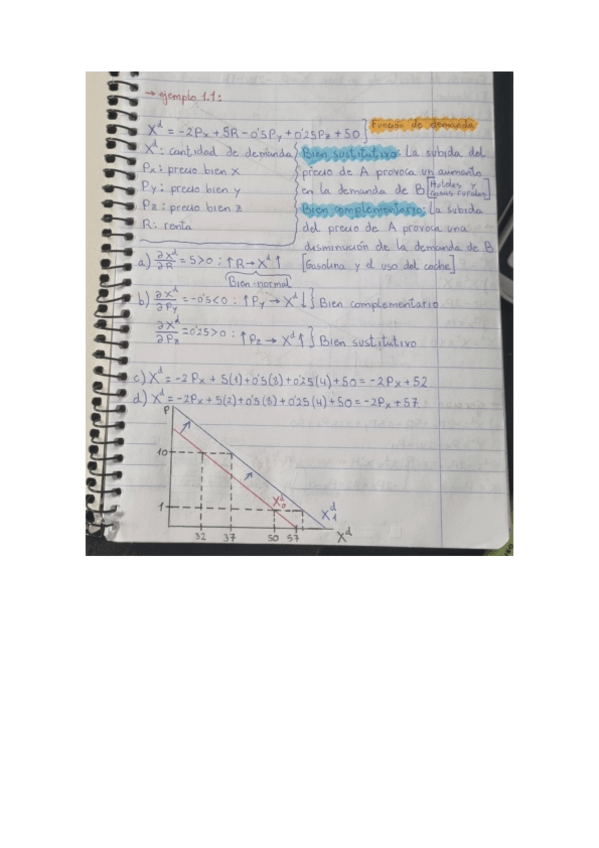 → ejemplo 1.1:
X^d = -2Px + 5R - 0'5Py + 0'25Pz + 50} Función de demanda
X^d: cantidad de demanda
Px: precio bien x
Py: precio bien y
Pz: precio bien z
R: renta
Bien sustitutivo: La subida del
precio de A provoca un aumento
en la demanda de B [Hoteles y casas rurales]
Bien complementario: La subida
del precio de A provoca una
disminución de la demanda de B
[Gasolina y el uso del coche]
a) ∂X^d/∂R = 5 > 0 : ↑R → X^d ↑
Bien normal
b) ∂X^d/∂Py = -0'5 < 0 : ↑Py → X^d ↓} Bien complementario
∂X^d/∂Pz = 0'25 > 0 : ↑Pz → X^d ↑} Bien sustitutivo
c) X^d = -2Px + 5(1) + 0'5(8) + 0'25(4) + 50 = -2Px + 52
d) X^d = -2Px + 5(2) + 0'5(8) + 0'25(4) + 50 = -2Px + 57
P
10
1
X^d_0
X^d_1
32 37 50 57 X^d